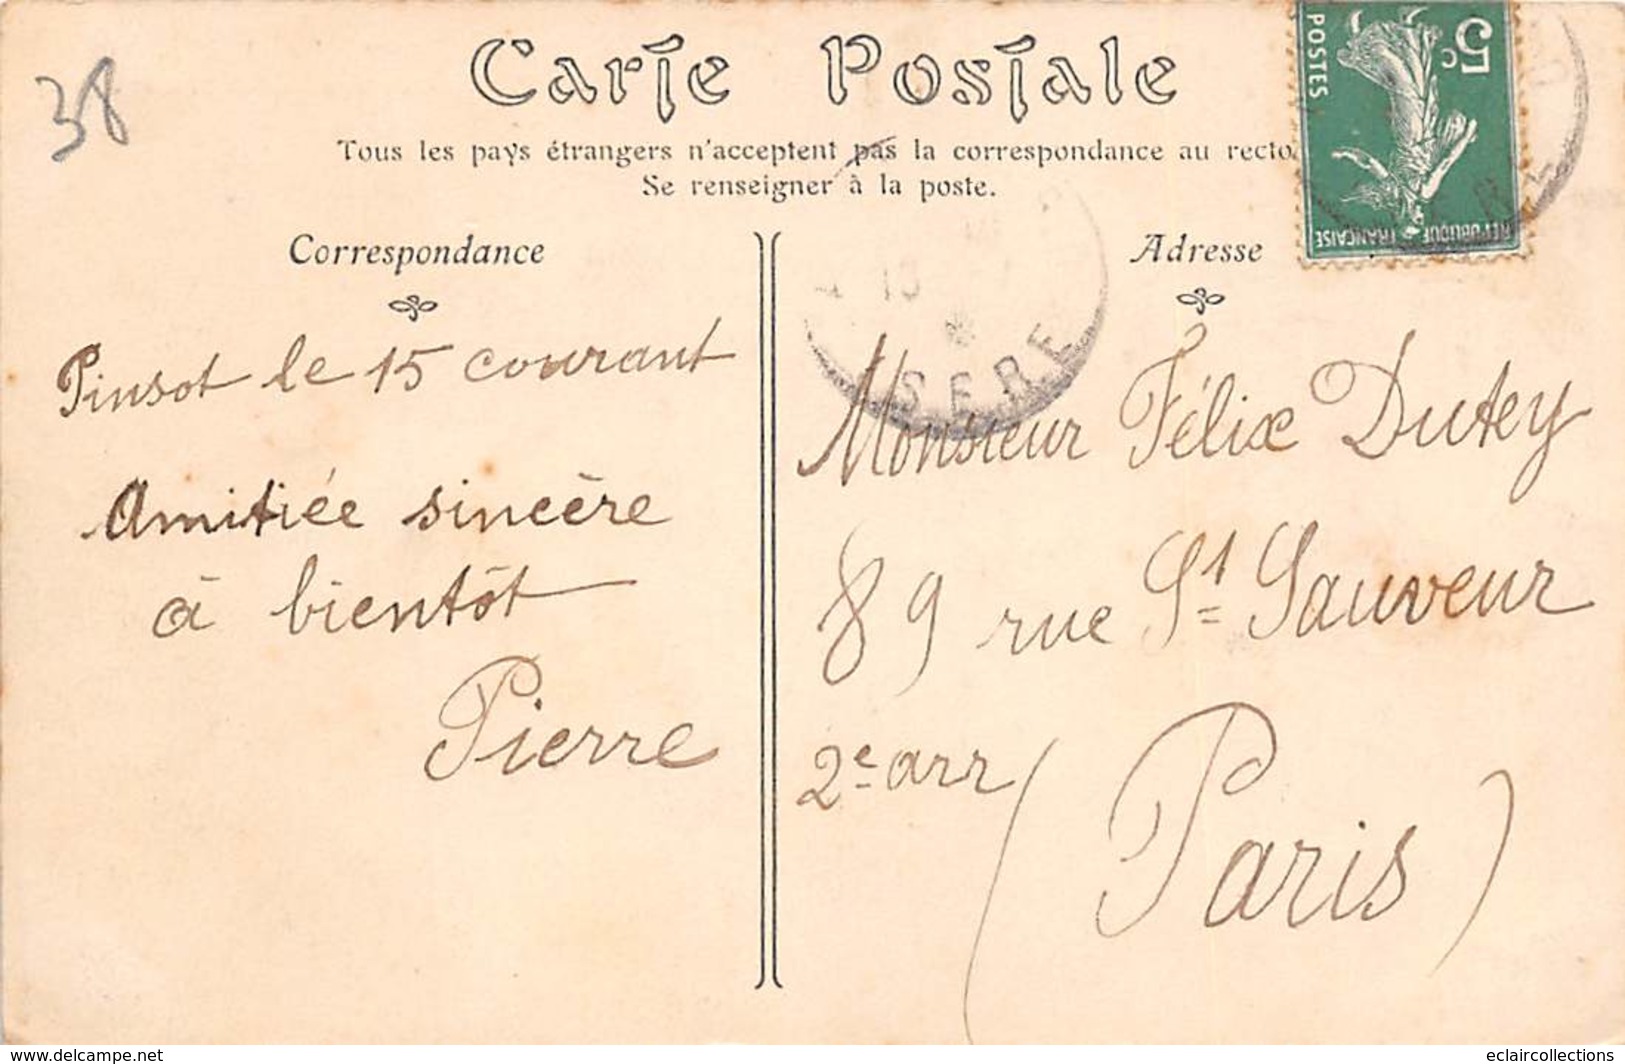 38
Carte Postale
Tous les pays étrangers n'acceptent pas la correspondance au recto
Se renseigner à la poste.
5c
POSTES
REPUBLIQUE FRANÇAISE
Correspondance
Adresse
13
ISERE
Pinsot le 15 courant
Amitiée sincère
à bientôt
Pierre
Monsieur Félix Dutey
89 rue St Sauveur
2e arr
(Paris)
www.delcampe.net
eclaircollections